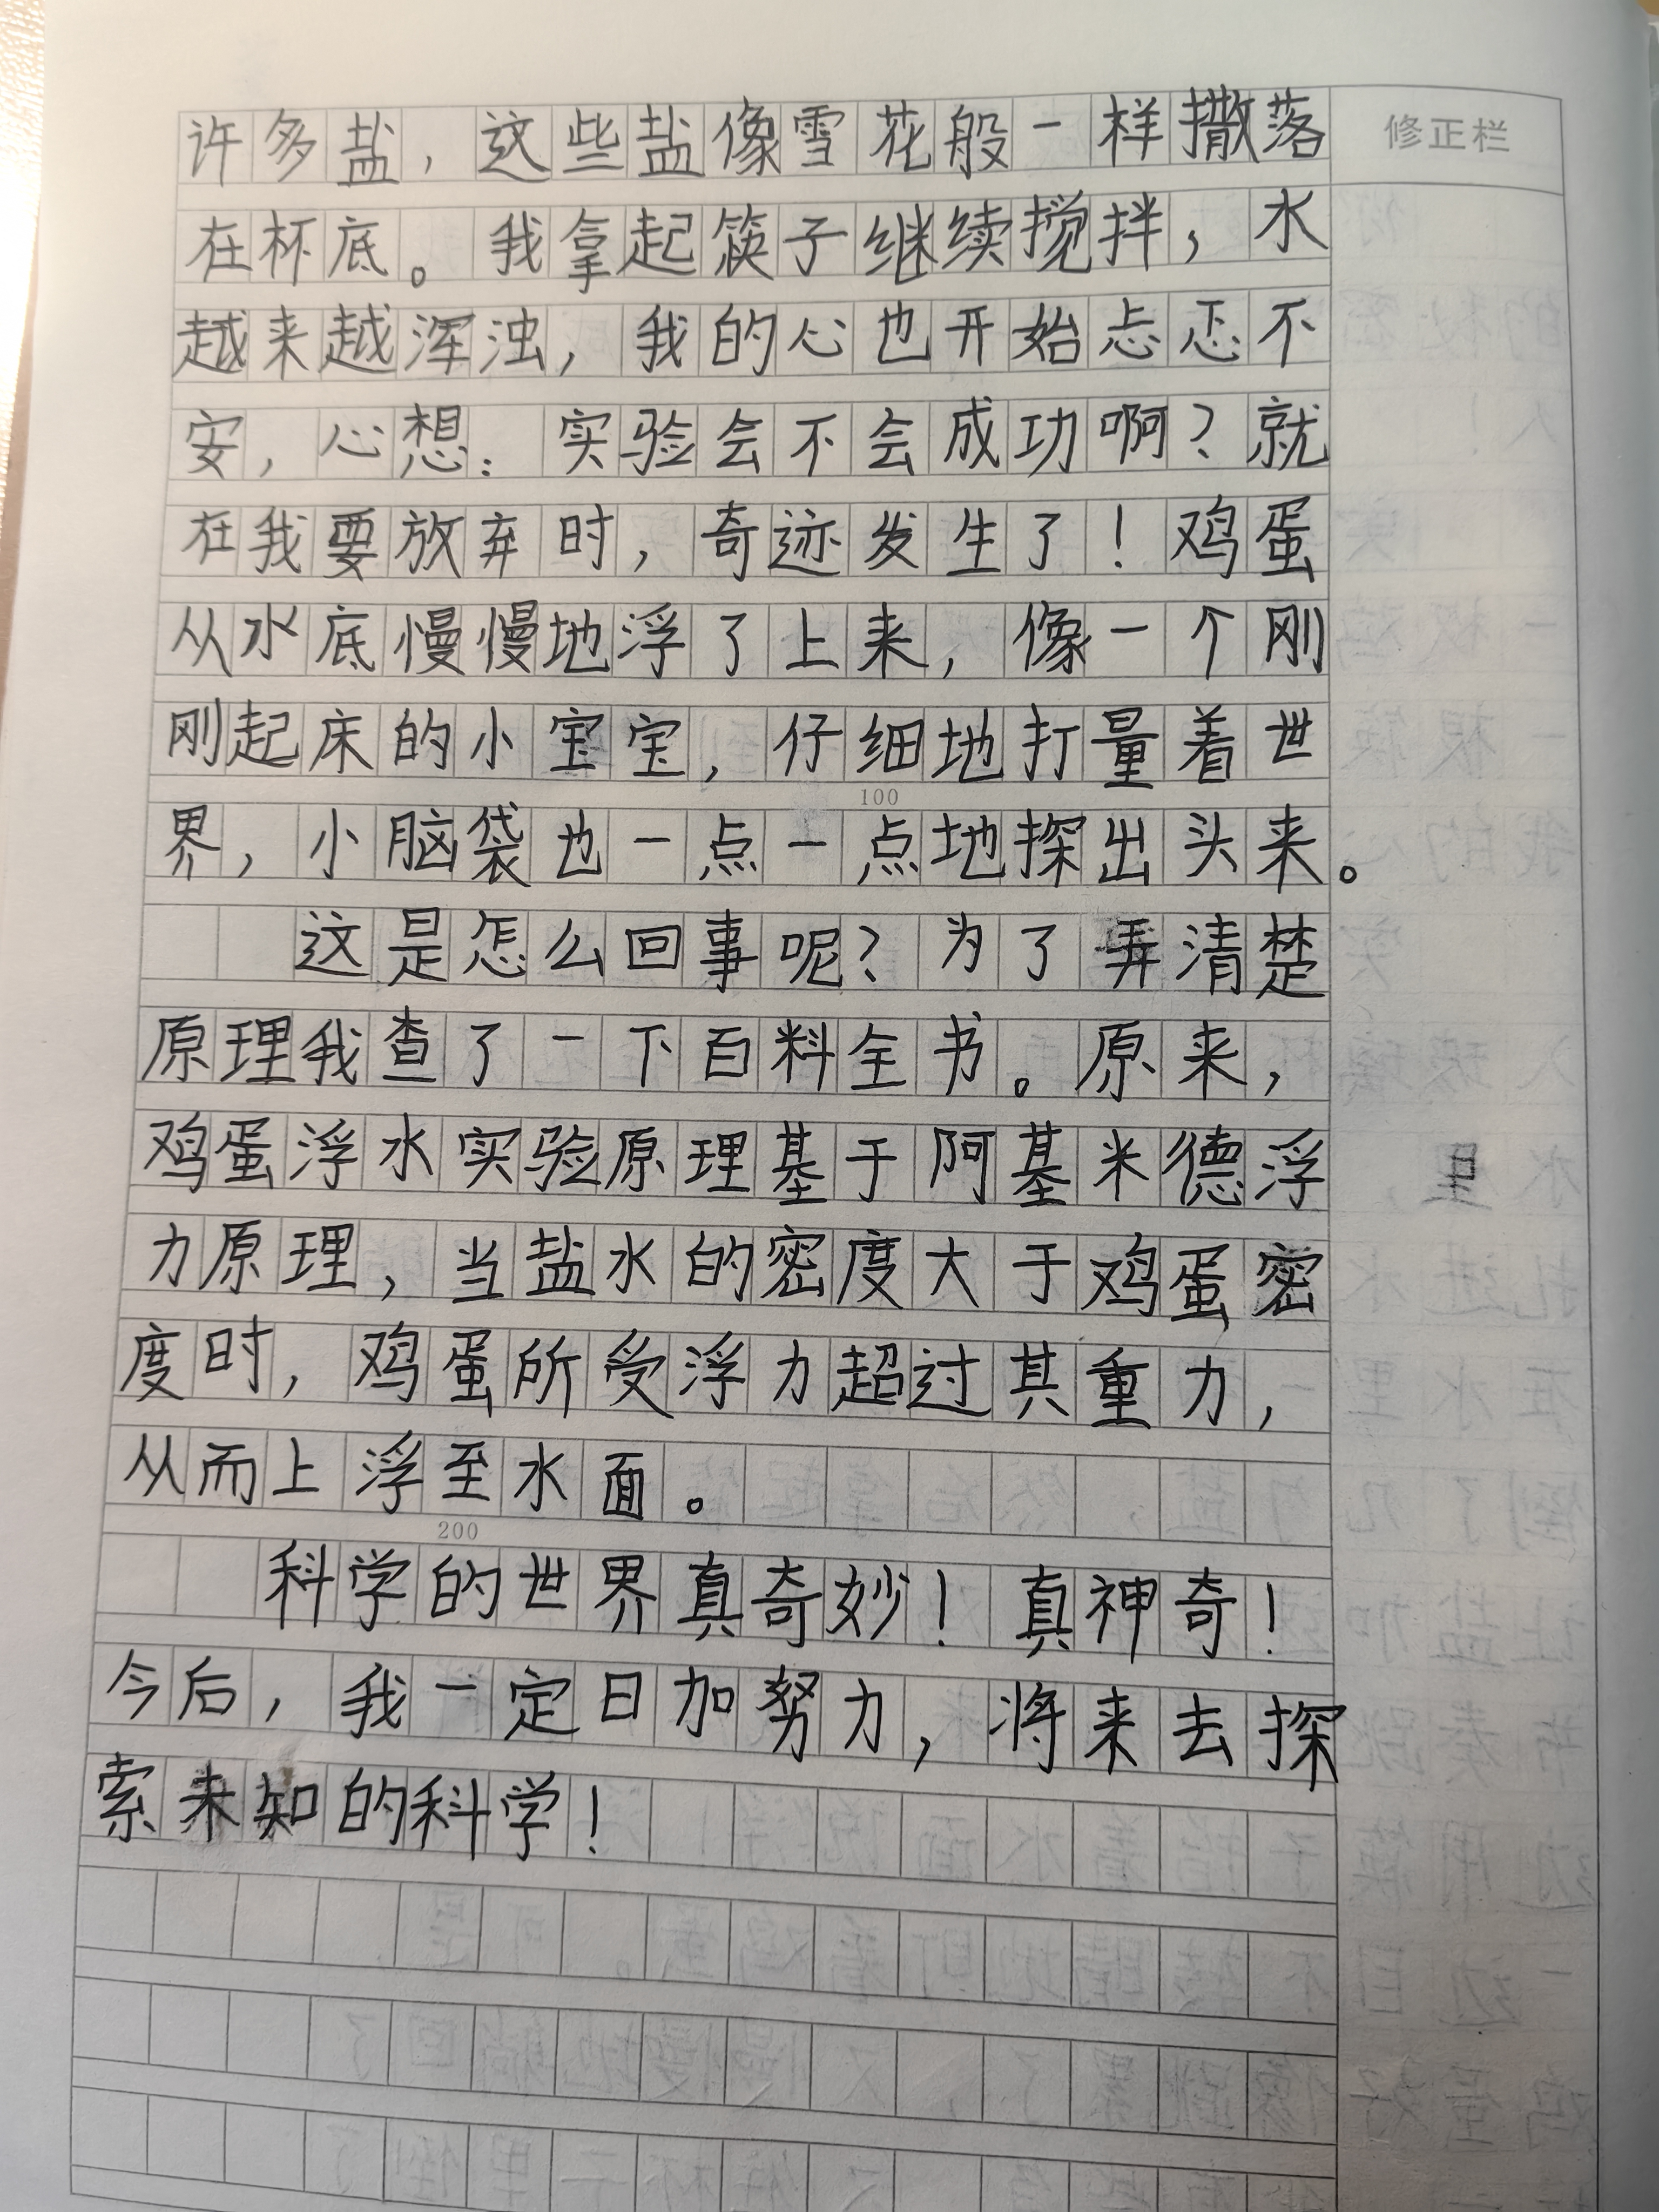 修正栏
许多盐，这些盐像雪花般一样撒落
在杯底。我拿起筷子继续搅拌，水
越来越浑浊，我的心也开始忐忑不
安，心想：实验会不会成功啊？就
在我要放弃时，奇迹发生了！鸡蛋
从水底慢慢地浮了上来，像一个刚
刚起床的小宝宝，仔细地打量着世
100
界，小脑袋也一点一点地探出头来。
这是怎么回事呢？为了弄清楚
原理我查了一下百科全书。原来，
鸡蛋浮水实验原理基于阿基米德浮
力原理，当盐水的密度大于鸡蛋密
度时，鸡蛋所受浮力超过其重力，
从而上浮至水面。
200
科学的世界真奇妙！真神奇！
今后，我一定日加努力，将来去探
索未知的科学！